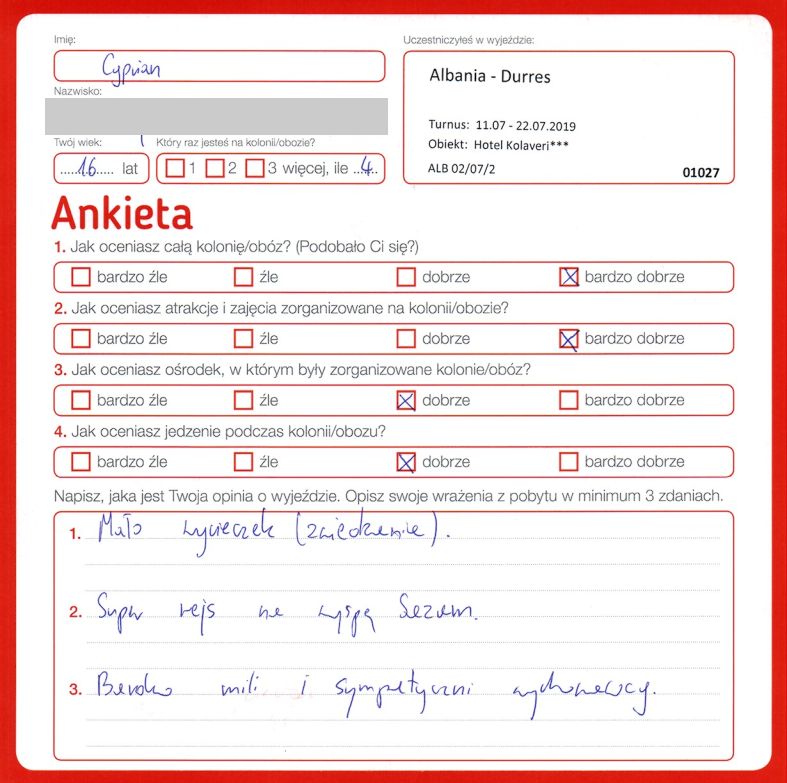 Imię:
Cyprian
Nazwisko:
Twój wiek:
.....16..... lat
Który raz jesteś na kolonii/obozie?
1 2 3 więcej, ile ...4...
Uczestniczyłeś w wyjeździe:
Albania - Durres
Turnus: 11.07 - 22.07.2019
Obiekt: Hotel Kolaveri***
ALB 02/07/2
01027
Ankieta
1. Jak oceniasz całą kolonię/obóz? (Podobało Ci się?)
bardzo źle źle dobrze bardzo dobrze
2. Jak oceniasz atrakcje i zajęcia zorganizowane na kolonii/obozie?
bardzo źle źle dobrze bardzo dobrze
3. Jak oceniasz ośrodek, w którym były zorganizowane kolonie/obóz?
bardzo źle źle dobrze bardzo dobrze
4. Jak oceniasz jedzenie podczas kolonii/obozu?
bardzo źle źle dobrze bardzo dobrze
Napisz, jaka jest Twoja opinia o wyjeździe. Opisz swoje wrażenia z pobytu w minimum 3 zdaniach.
1. Mało wycieczek (zwiedzanie).
2. Super rejs na wyspę Sazan.
3. Bardzo mili i sympatyczni wychowawcy.